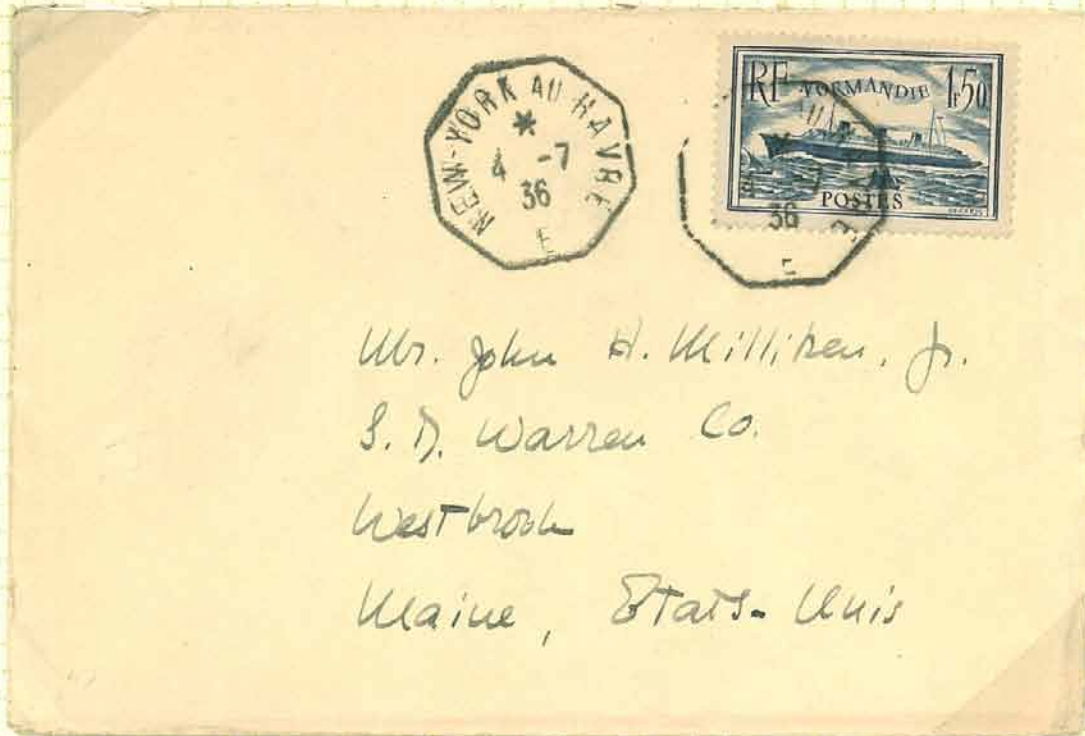 NEW-YORK AU HAVRE
*
4 -7
36
E
RF NORMANDIE 1f50
POSTES
36
E
Mr. John H. Milliken, Jr.
S. D. Warren Co.
Westbrook
Maine, Etats-Unis